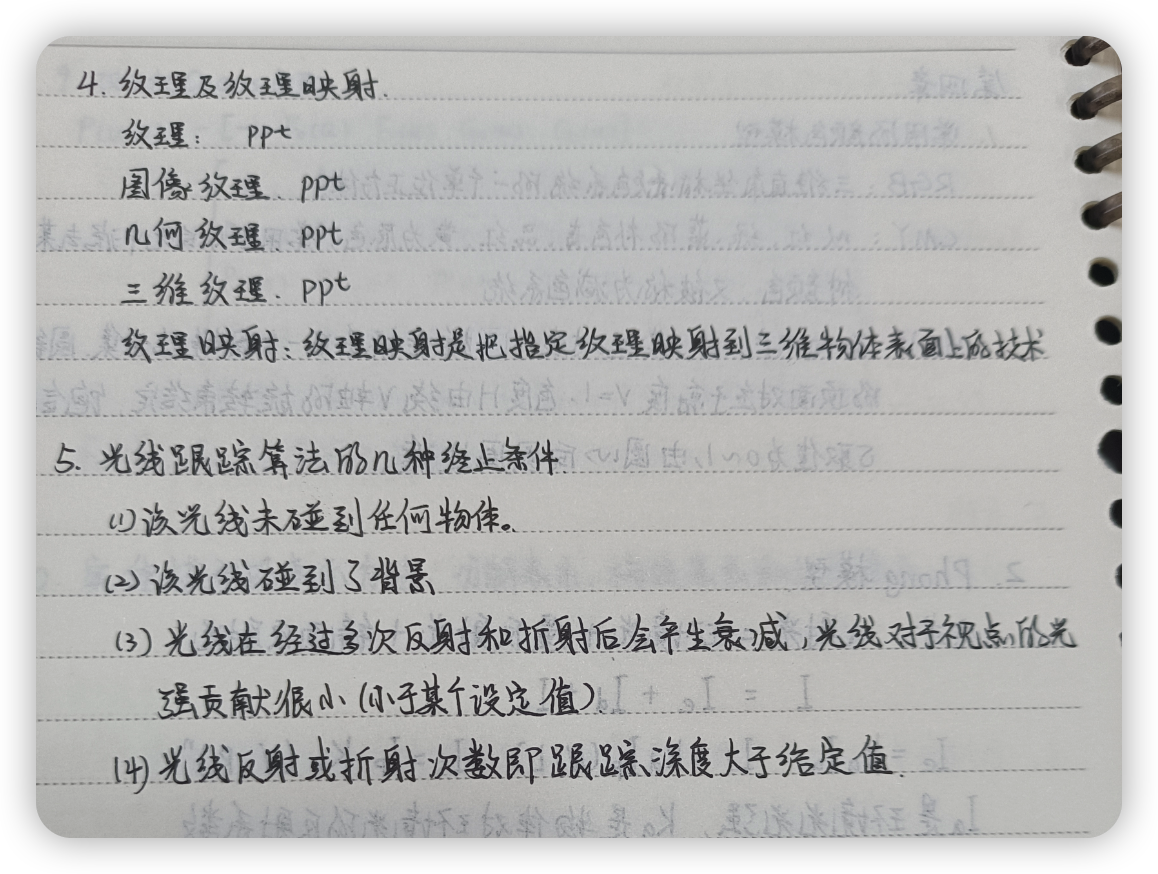 4. 纹理及纹理映射.
纹理： ppt
图像纹理. ppt
几何纹理. ppt
三维纹理. ppt
纹理映射：纹理映射是把指定纹理映射到三维物体表面上的技术
5. 光线跟踪算法的几种终止条件.
(1) 该光线未碰到任何物体。
(2) 该光线碰到了背景
(3) 光线在经过多次反射和折射后会产生衰减，光线对于视点的光
强贡献很小（小于某个设定值）.
(4) 光线反射或折射次数即跟踪深度大于给定值.